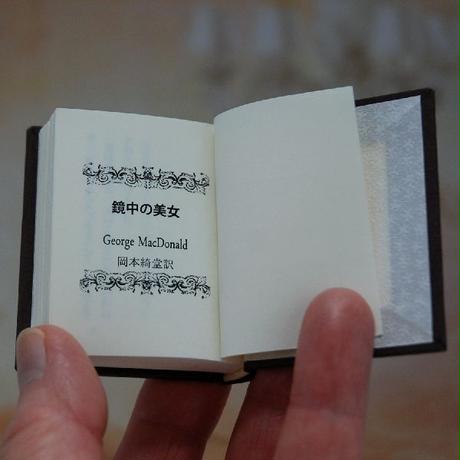 鏡中の美女
George MacDonald
岡本綺堂訳